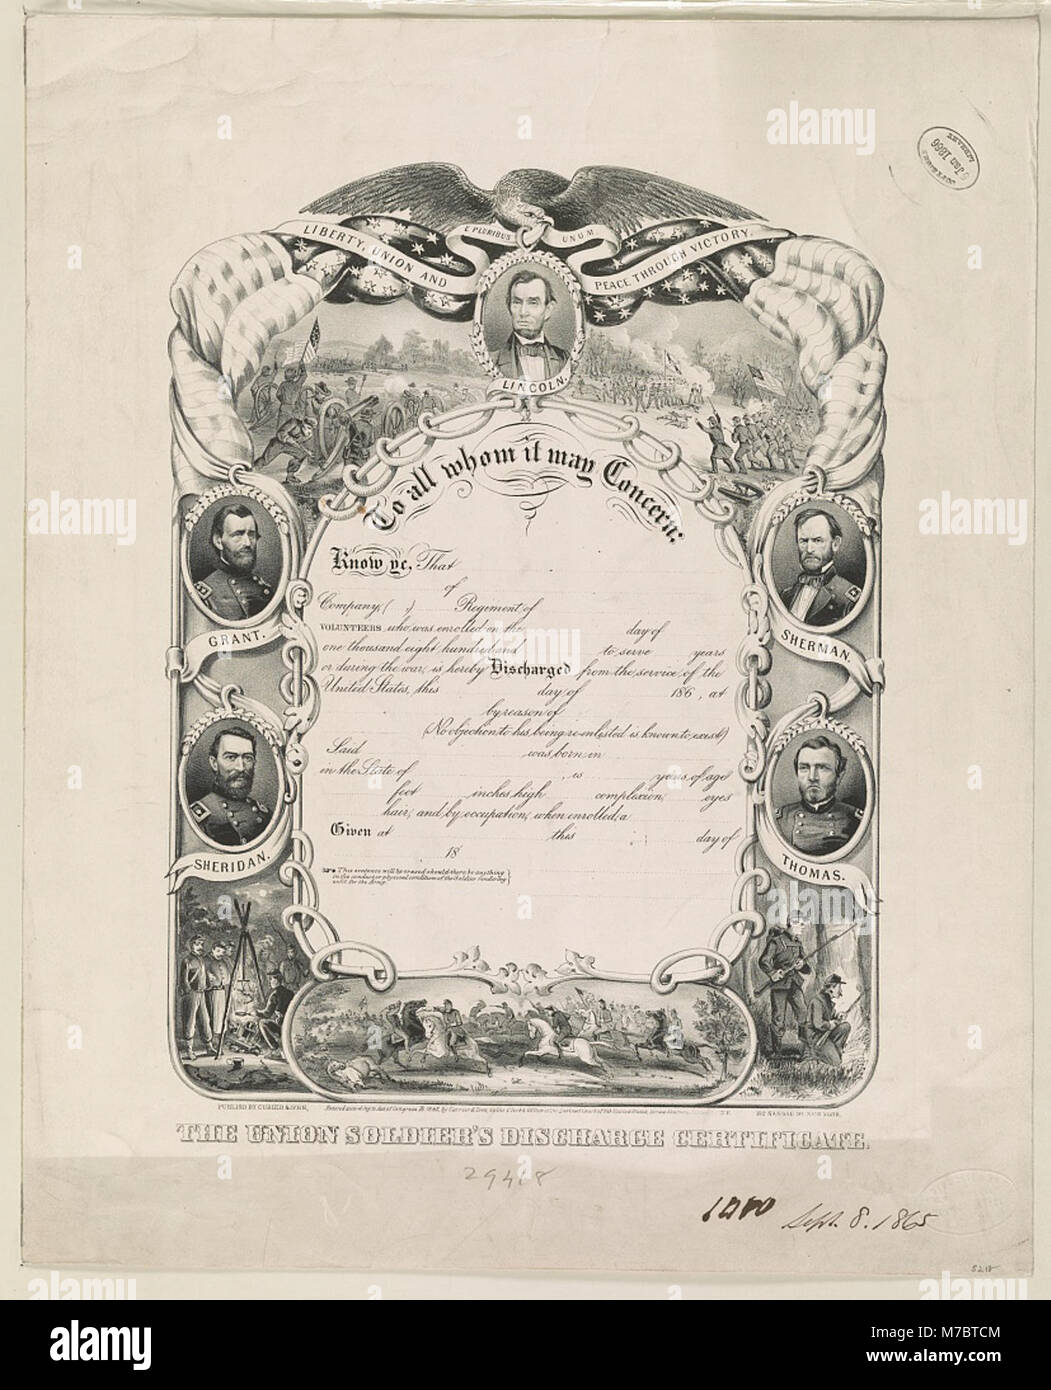 COPYRIGHT
6 Jan 1866
LIBRARY
E PLURIBUS UNUM.
LIBERTY, UNION AND PEACE THROUGH VICTORY.
LINCOLN.
To all whom it may Concern:
GRANT.
SHERMAN.
SHERIDAN.
THOMAS.
Know ye, That
of
Company, ( ,) Regiment of
VOLUNTEERS who was enrolled on the day of
one thousand eight hundred and to serve years
or during the war, is hereby Discharged from the service of the
United States, this day of 186 , at
by reason of
(No objection to his being re-enlisted is known to exist.)
Said was born in
in the State of , is years of age
feet inches high complexion, eyes
hair, and by occupation, when enrolled, a
Given at this day of
18
This sentence will be erased should there be anything
in the conduct or physical condition of the Soldier rendering
unfit for the Army.
PUBLISHED BY CURRIER & IVES,
Entered according to Act of Congress, 1865, by Currier & Ives, in the Clerk's Office of the District Court of the United States,
152 NASSAU ST. NEW YORK.
THE UNION SOLDIER'S DISCHARGE CERTIFICATE.
29418
Sept. 8. 1865
5218
alamy
alamy
alamy
Image ID: M7BTCM
www.alamy.com